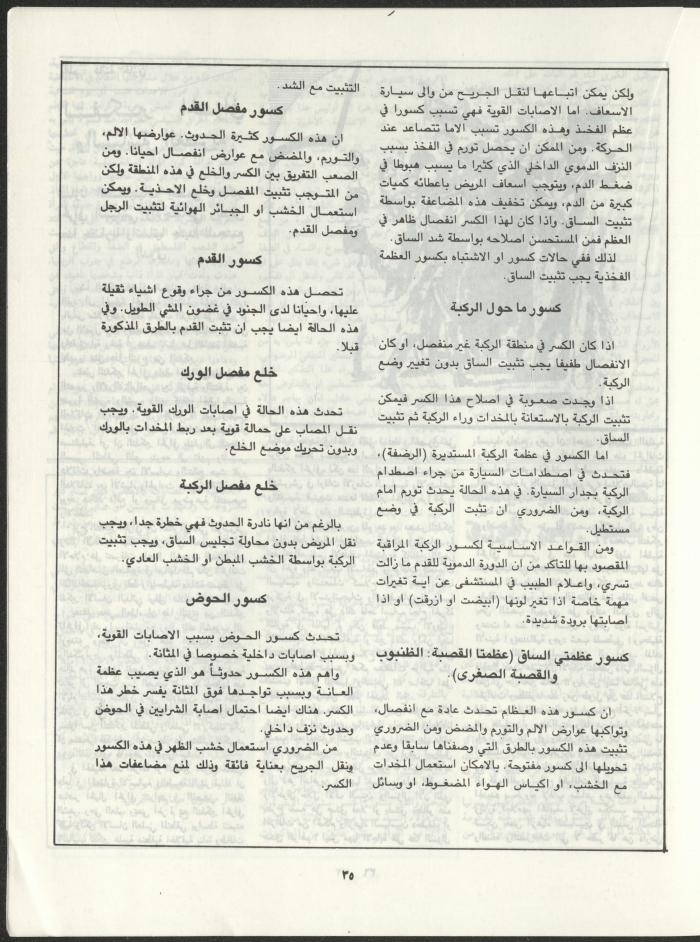 ولكن يمكن اتباعها لنقل الجريح من والى سيارة
الاسعاف. اما الاصابات القوية فهي تسبب كسورا في
عظم الفخذ وهذه الكسور تسبب الاما تتصاعد عند
الحركة. ومن الممكن ان يحصل تورم في الفخذ بسبب
النزف الدموي الداخلي الذي كثيرا ما يسبب هبوطا في
ضغط الدم، ويتوجب اسعاف المريض باعطائه كميات
كبيرة من الدم، ويمكن تخفيف هذه المضاعفة بواسطة
تثبيت الساق. واذا كان لهذا الكسر انفصال ظاهر في
العظم فمن المستحسن اصلاحه بواسطة شد الساق.
لذلك ففي حالات كسور او الاشتباه بكسور العظمة
الفخذية يجب تثبيت الساق.
كسور ما حول الركبة
اذا كان الكسر في منطقة الركبة غير منفصل، او كان
الانفصال طفيفا يجب تثبيت الساق بدون تغيير وضع
الركبة.
اذا وجدت صعوبة في اصلاح هذا الكسر فيمكن
تثبيت الركبة بالاستعانة بالمخدات وراء الركبة ثم تثبيت
الساق.
اما الكسور في عظمة الركبة المستديرة (الرضفة)،
فتحدث في اصطدامات السيارة من جراء اصطدام
الركبة بجدار السيارة. في هذه الحالة يحدث تورم امام
الركبة، ومن الضروري ان تثبت الركبة في وضع
مستطيل.
ومن القواعد الاساسية لكسور الركبة المراقبة
المقصود بها للتأكد من ان الدورة الدموية للقدم ما زالت
تسري، واعلام الطبيب في المستشفى عن اية تغيرات
مهمة خاصة اذا تغير لونها (ابيضت او ازرقت) او اذا
اصابتها برودة شديدة.
كسور عظمتي الساق (عظمتا القصبة: الظنبوب
والقصبة الصغرى).
ان كسور هذه العظام تحدث عادة مع انفصال،
وتواكبها عوارض الالم والتورم والمضض ومن الضروري
تثبيت هذه الكسور بالطرق التي وصفناها سابقا وعدم
تحويلها الى كسور مفتوحة. بالامكان استعمال المخدات
مع الخشب، او اكياس الهواء المضغوط، او وسائل
التثبيت مع الشد.
كسور مفصل القدم
ان هذه الكسور كثيرة الحدوث. عوارضها الالم،
والتورم، والمضض مع عوارض انفصال احيانا. ومن
الصعب التفريق بين الكسر والخلع في هذه المنطقة ولكن
من المتوجب تثبيت المفصل وخلع الاحذية. ويمكن
استعمال الخشب او الجبائر الهوائية لتثبيت الرجل
ومفصل القدم.
كسور القدم
تحصل هذه الكسور من جراء وقوع اشياء ثقيلة
عليها، واحيانا لدى الجنود في غضون المشي الطويل. وفي
هذه الحالة ايضا يجب ان تثبت القدم بالطرق المذكورة
قبلا.
خلع مفصل الورك
تحدث هذه الحالة في اصابات الورك القوية. ويجب
نقل المصاب على حمالة قوية بعد ربط المخدات بالورك
وبدون تحريك موضع الخلع.
خلع مفصل الركبة
بالرغم من انها نادرة الحدوث فهي خطرة جدا، ويجب
نقل المريض بدون محاولة تجليس الساق، ويجب تثبيت
الركبة بواسطة الخشب المبطن او الخشب العادي.
كسور الحوض
تحدث كسور الحوض بسبب الاصابات القوية،
وبسبب اصابات داخلية خصوصا في المثانة.
واهم هذه الكسور حدوثاً هو الذي يصيب عظمة
العانة وبسبب تواجدها فوق المثانة يفسر خطر هذا
الكسر. هناك ايضا احتمال اصابة الشرايين في الحوض
وحدوث نزف داخلي.
من الضروري استعمال خشب الظهر في هذه الكسور
ونقل الجريح بعناية فائقة وذلك لمنع مضاعفات هذا
الكسر.
٣٥